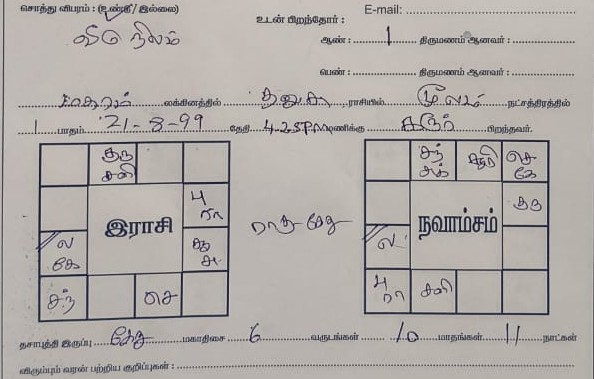 சொத்து விபரம் : (உண்டு / இல்லை) E-mail:
வீடு நிலம் உடன் பிறந்தோர் :
ஆண் : 1 திருமணம் ஆனவர் :
பெண் : திருமணம் ஆனவர் :
மகரம் லக்கினத்தில் தனுசு ராசியில் மூலம் நட்சத்திரத்தில்
1 பாதம் 21-8-99 தேதி 4.25PM மணிக்கு கரூர் பிறந்தவர்.
குரு சனி சந் சுக் சூரி செ கே
பு ரா குரு
இராசி ராகு கேது நவாம்சம்
ல கே சூ சு ல
சந் செ பு ரா சனி
தசாபுத்தி இருப்பு கேது மகாதிசை 6 வருடங்கள் 10 மாதங்கள் 11 நாட்கள்
விரும்பும் வரன் பற்றிய குறிப்புகள் :